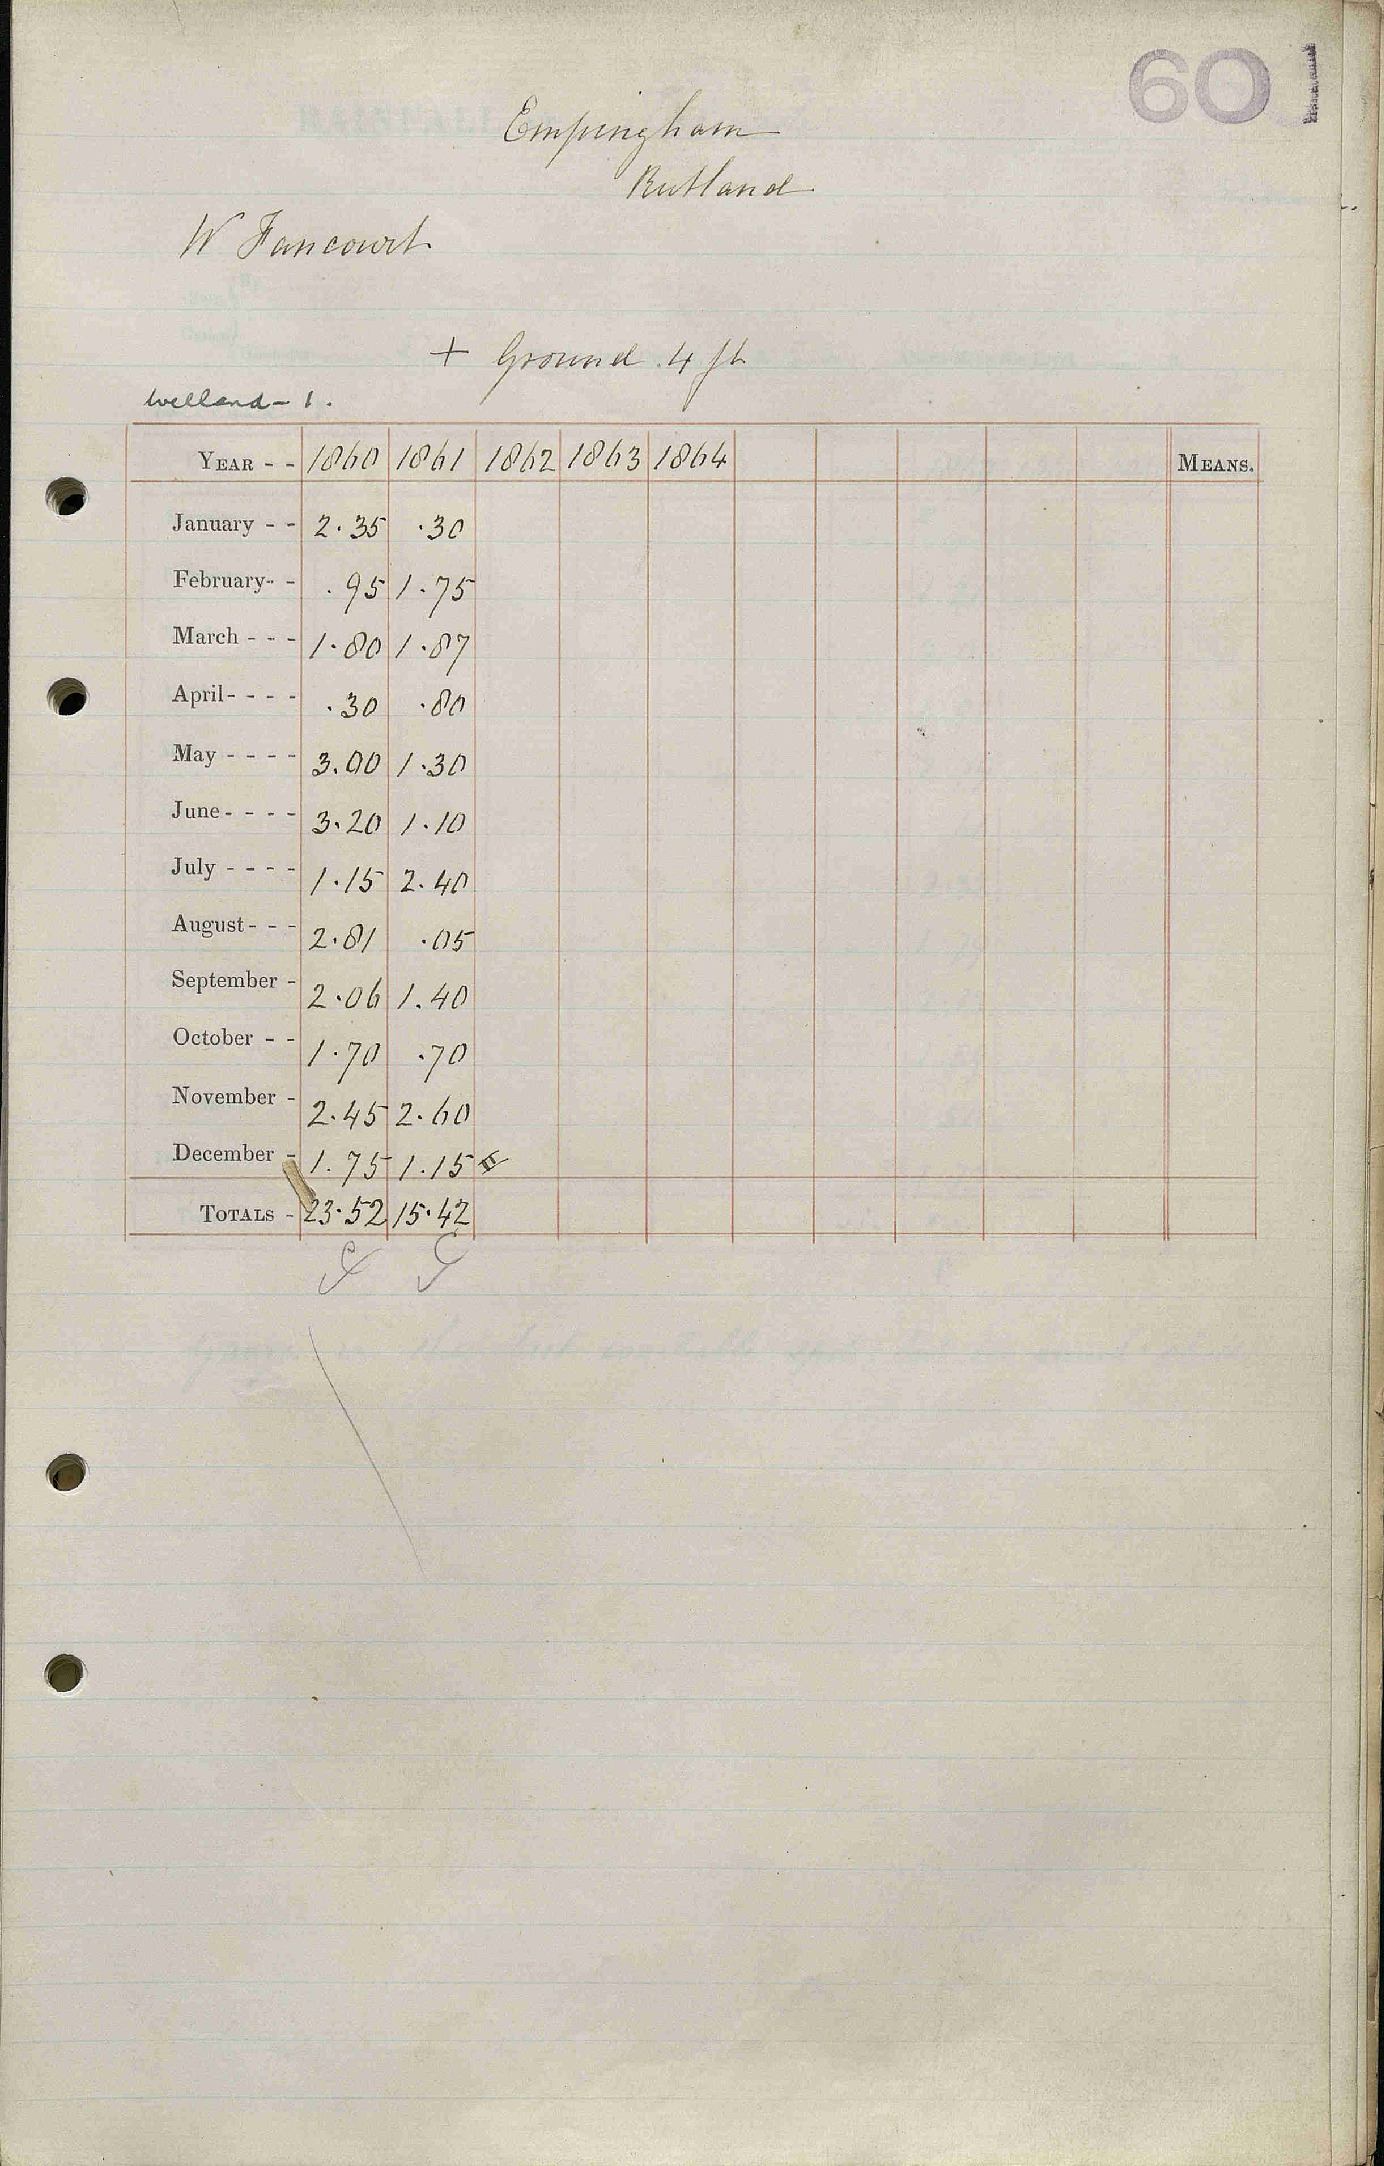 601
Empingham
Rutland
W Fancourt
+ Ground 4 ft
Welland - 1.
YEAR - - 1860 1861 1862 1863 1864 MEANS.
January - - 2.35 .30
February - - .95 1.75
March - - - 1.80 1.87
April - - - - .30 .80
May - - - - 3.00 1.30
June - - - - 3.20 1.10
July - - - - 1.15 2.40
August - - - 2.81 .05
September - 2.06 1.40
October - - 1.70 .70
November - 2.45 2.60
December - 1.75 1.15
TOTALS - 23.52 15.42